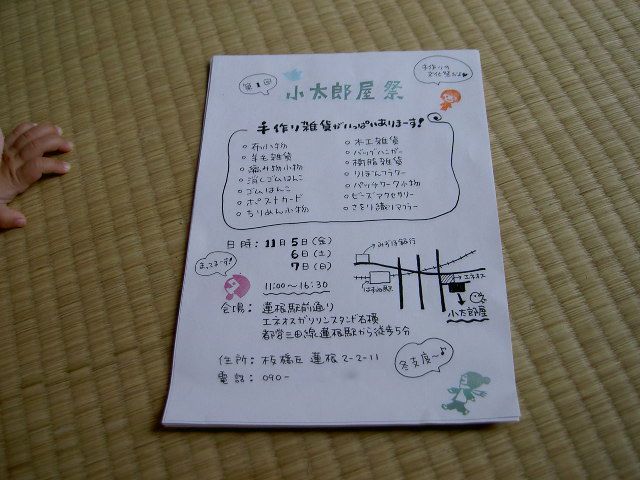 第1回
小太郎屋祭
手作りの
文化祭だよ
手作り雑貨がいっぱいありまーす!
○ 布小物
○ 羊毛雑貨
○ 編み物小物
○ 消しゴムはんこ
○ ゴムはんこ
○ ポストカード
○ ちりめん小物
○ 木工雑貨
○ バッグハンガー
○ 樹脂雑貨
○ りぼんフラワー
○ パッチワーク小物
○ ビーズアクセサリー
○ さをり織りマフラー
日時: 11月5日(金)
6日(土)
7日(日)
11:00〜16:30
まってまーす!
みずほ銀行
はすね駅
エネオス
小太郎屋
会場: 蓮根駅前通り
エネオスガソリンスタンド右横
都営三田線蓮根駅から徒歩5分
住所: 板橋区蓮根2-2-11
電話: 090-
冬支度〜♪